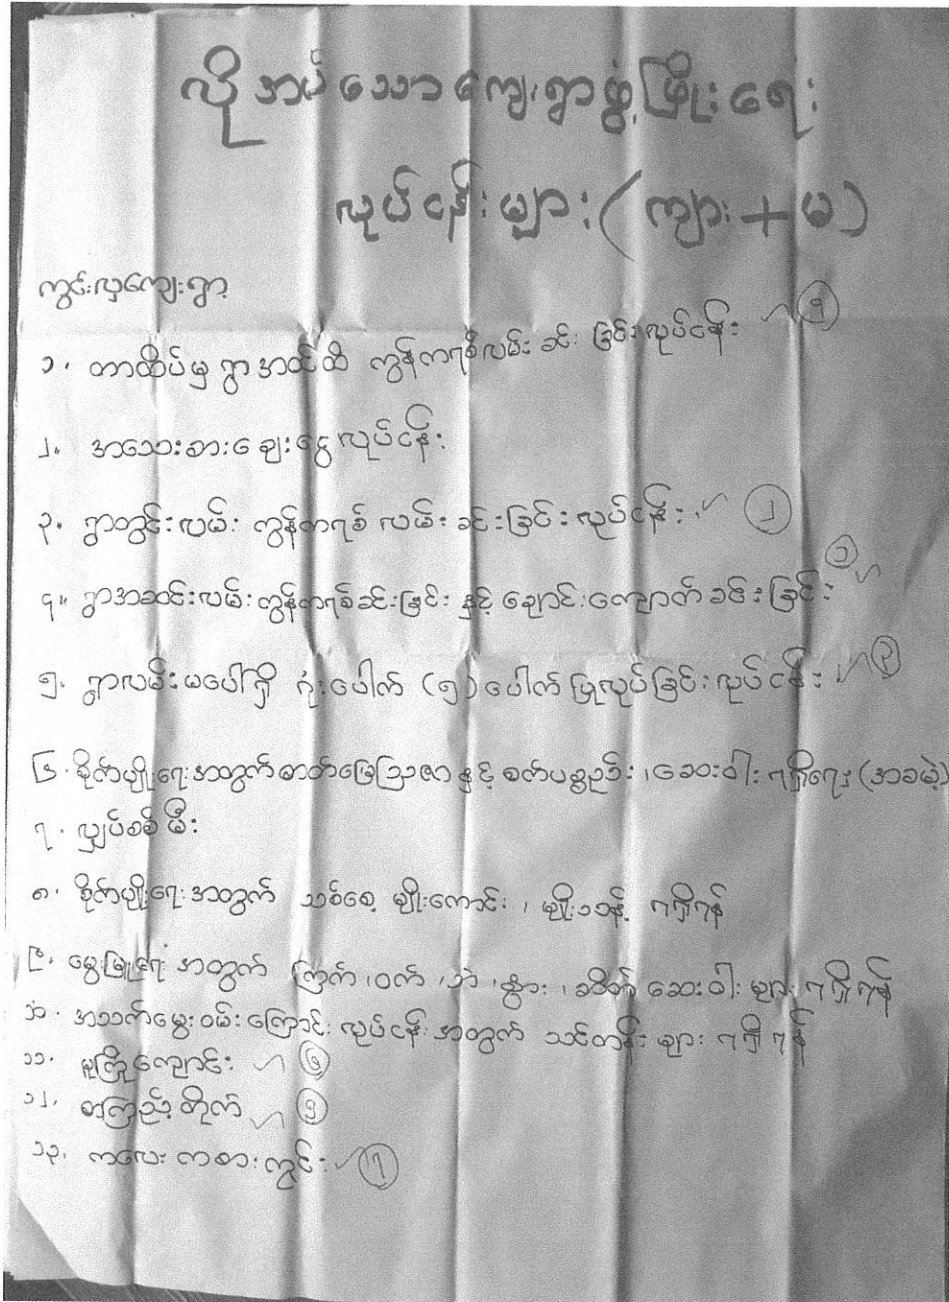 လိုအပ်သောကျေးရွာဖွံ့ဖြိုးရေး
လုပ်ငန်းများ (ကျား + မ)
ကွင်းလှကျေးရွာ
၁. တာထိပ်မှ ရွာအထင်ထိ ကွန်ကရစ်လမ်း ခင်းခြင်းလုပ်ငန်း ၄
၂. အသေးစားချေးငွေလုပ်ငန်း
၃. ရွာတွင်းလမ်း ကွန်ကရစ် လမ်းခင်းခြင်းလုပ်ငန်း ၂
၄။ ရွာအဆင်းလမ်း ကွန်ကရစ်ခင်းခြင်း နှင့် ချောင်းကျောက်ခင်းခြင်း ၁
၅. ရွာလမ်းမပေါ်ရှိ ဂုံးပေါက် (၅) ပေါက် ပြုလုပ်ခြင်းလုပ်ငန်း ၃
၆. စိုက်ပျိုးရေးအတွက်ဓာတ်မြေဩဇာ နှင့် စက်ပစ္စည်း ၊ ဆေးဝါး ရရှိရေး (အခမဲ့)
၇. လျှပ်စစ်မီး
၈. စိုက်ပျိုးရေးအတွက် သစ်စေ့ မျိုးကောင်း ၊ မျိုးသန့် ရရှိရန်
၉. မွေးမြူရေးအတွက် ကြက် ၊ ဝက် ၊ ဘဲ ၊ နွား ၊ ဆိတ် ဆေးဝါးများ ရရှိရန်
၁၀. အသက်မွေးဝမ်းကြောင်းလုပ်ငန်းအတွက် သင်တန်းများ ရရှိရန်
၁၁. မူကြိုကျောင်း ၆
၁၂. စာကြည့်တိုက် ၅
၁၃. ကလေးကစားကွင်း ၇